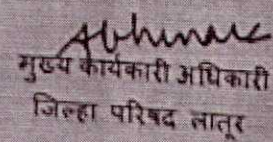 मुख्य कार्यकारी अधिकारी
जिल्हा परिषद लातूर